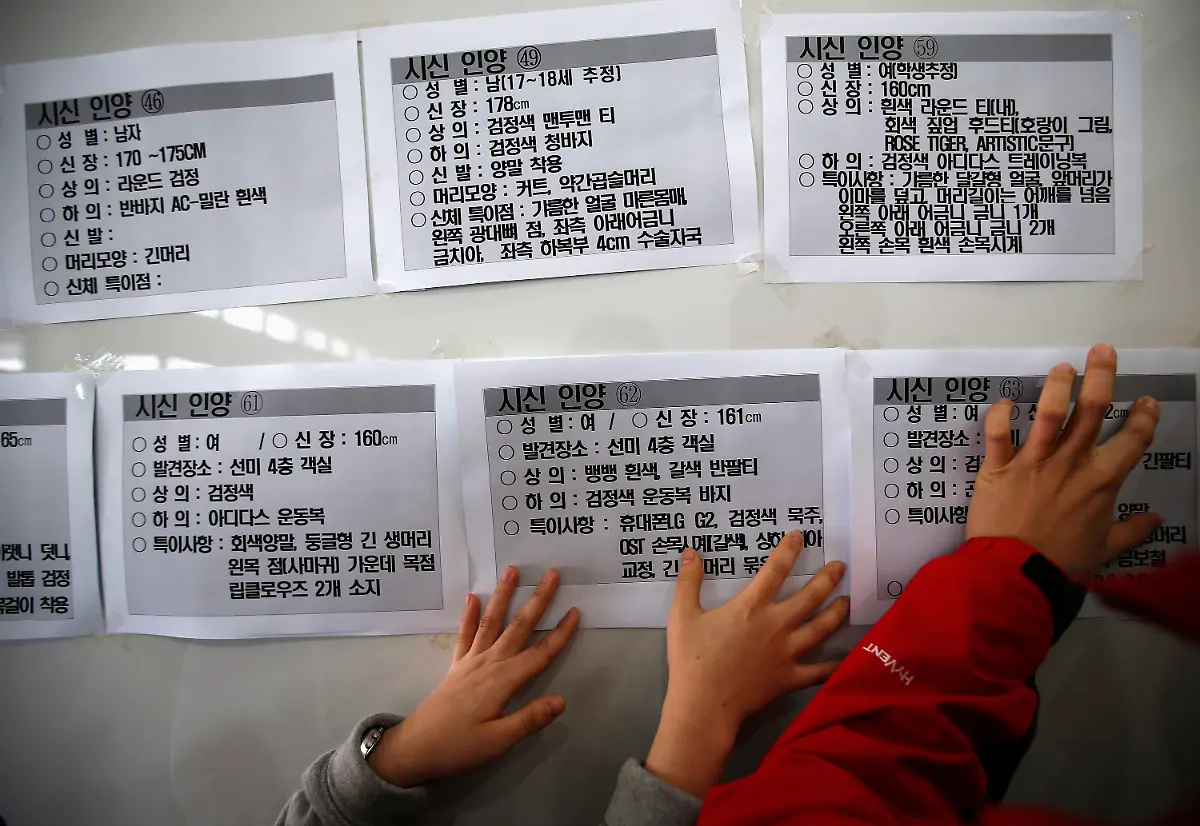 시신 인양 ㊻
○ 성 별 : 남자
○ 신 장 : 170 ~175CM
○ 상 의 : 라운드 검정
○ 하 의 : 반바지 AC-밀란 흰색
○ 신 발 :
○ 머리모양 : 긴머리
○ 신체 특이점 :
시신 인양 ㊾
○ 성 별 : 남(17~18세 추정)
○ 신 장 : 178cm
○ 상 의 : 검정색 맨투맨 티
○ 하 의 : 검정색 청바지
○ 신 발 : 양말 착용
○ 머리모양 : 커트, 약간곱슬머리
○ 신체 특이점 : 갸름한 얼굴 마른몸매,
왼쪽 광대뼈 점, 좌측 아래어금니
금치아, 좌측 하복부 4cm 수술자국
시신 인양 59
○ 성 별 : 여(학생추정)
○ 신 장 : 160cm
○ 상 의 : 흰색 라운드 티(내),
회색 짚업 후드티(호랑이 그림,
ROSE TIGER, ARTISTIC문구)
○ 하 의 : 검정색 아디다스 트레이닝복
○ 특이사항 : 갸름한 달걀형 얼굴, 앞머리가
이마를 덮고, 머리길이는 어깨를 넘음
왼쪽 아래 어금니 금니 1개
오른쪽 아래 어금니 금니 2개
왼쪽 손목 흰색 손목시계
65cm
덧니
발톱 검정
착용
시신 인양 61
○ 성 별 : 여 / ○ 신 장 : 160cm
○ 발견장소 : 선미 4층 객실
○ 상 의 : 검정색
○ 하 의 : 아디다스 운동복
○ 특이사항 : 회색양말, 둥글형 긴 생머리
왼목 점(사마귀) 가운데 목점
립클로우즈 2개 소지
시신 인양 62
○ 성 별 : 여 / ○ 신 장 : 161cm
○ 발견장소 : 선미 4층 객실
○ 상 의 : 뱅뱅 흰색, 갈색 반팔티
○ 하 의 : 검정색 운동복 바지
○ 특이사항 : 휴대폰LG G2, 검정색 묵주,
OST 손목시계(갈색),
교정,
시신 인양 63
○ 성 별 : 여 ○ 2cm
○ 발견장소 :
○ 상 의 : 긴팔티
○ 하 의 :
○ 특이사항 : 양말
HYVENT